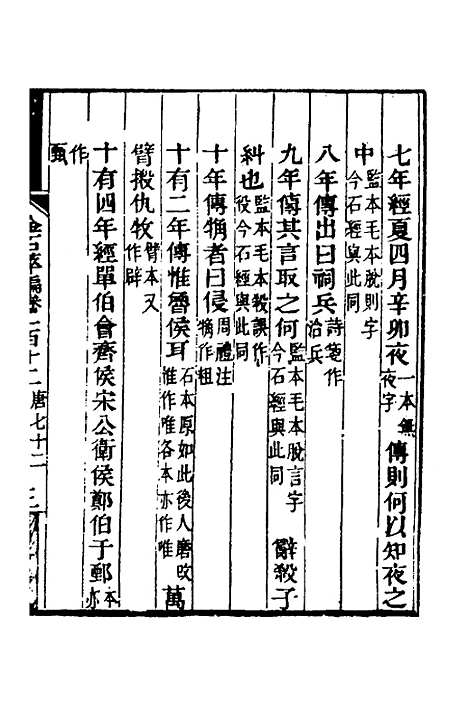 七年經夏四月辛卯夜一本無夜字傳則何以知夜之
中監本毛本脫則字今石經與此同
八年傳出曰祠兵詩箋作治兵
九年傳其言取之何監本毛本脫言字今石經與此同辭殺子
糾也監本毛本殺誤作役今石經與此同
十年傳觕者曰侵周禮注觕作粗
十有二年傳惟魯侯耳石本原如此後人磨改惟作唯各本亦作唯萬
臂摋仇牧臂本又作辟
十有四年經單伯會齊侯宋公衛侯鄭伯于鄄本亦
作甄
金石萃編卷一百十二 唐七十二